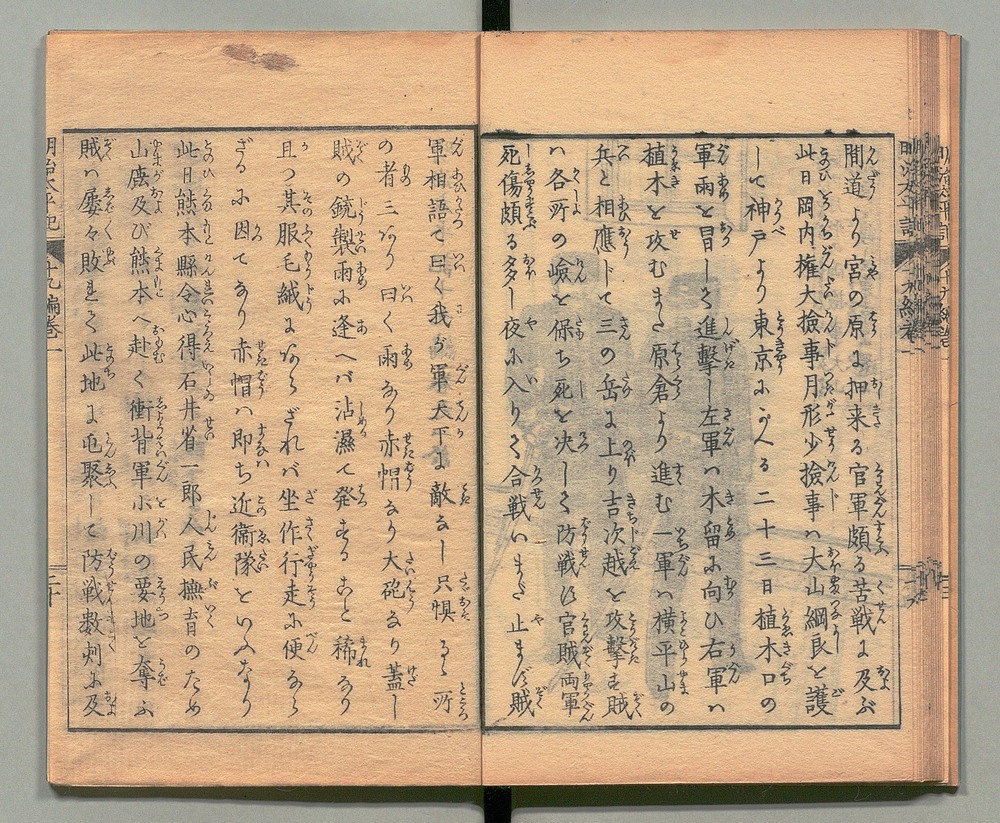 間道より宮の原に押来る官軍頗る苦戦に及ぶ
此日岡内権大撿事月形少撿事ハ大山綱良を護
して神戸より東京にかへる二十三日植木口の
軍雨を冒して進撃し左軍ハ木留に向ひ右軍ハ
植木を攻むまた原倉より進む一軍ハ横平山の
兵と相應じて三の岳に上り吉次越を攻撃す賊
ハ各所の嶮を保ち死を决して防戦し官賊両軍
死傷頗る多し夜に入りて合戦いまだ止まず賊
軍相語て曰く我が軍天下に敵なし只惧るゝ所
の者三あり曰く雨なり赤帽なり大砲なり蓋し
賊の銃製雨に逢へバ沾濕て発することと稀なり
且つ其服毛絨にあらざれバ坐作行走に便なら
ざるに因てなり赤帽ハ即ち近衞隊をいふなり
此日熊本縣令心得石井省一郎人民撫育のため
山鹿及び熊本へ赴く衝背軍小川の要地を奪ふ
賊ハ屡々敗れて此地に屯聚して防戦数刻に及
明治太平記
十九編巻一
二十